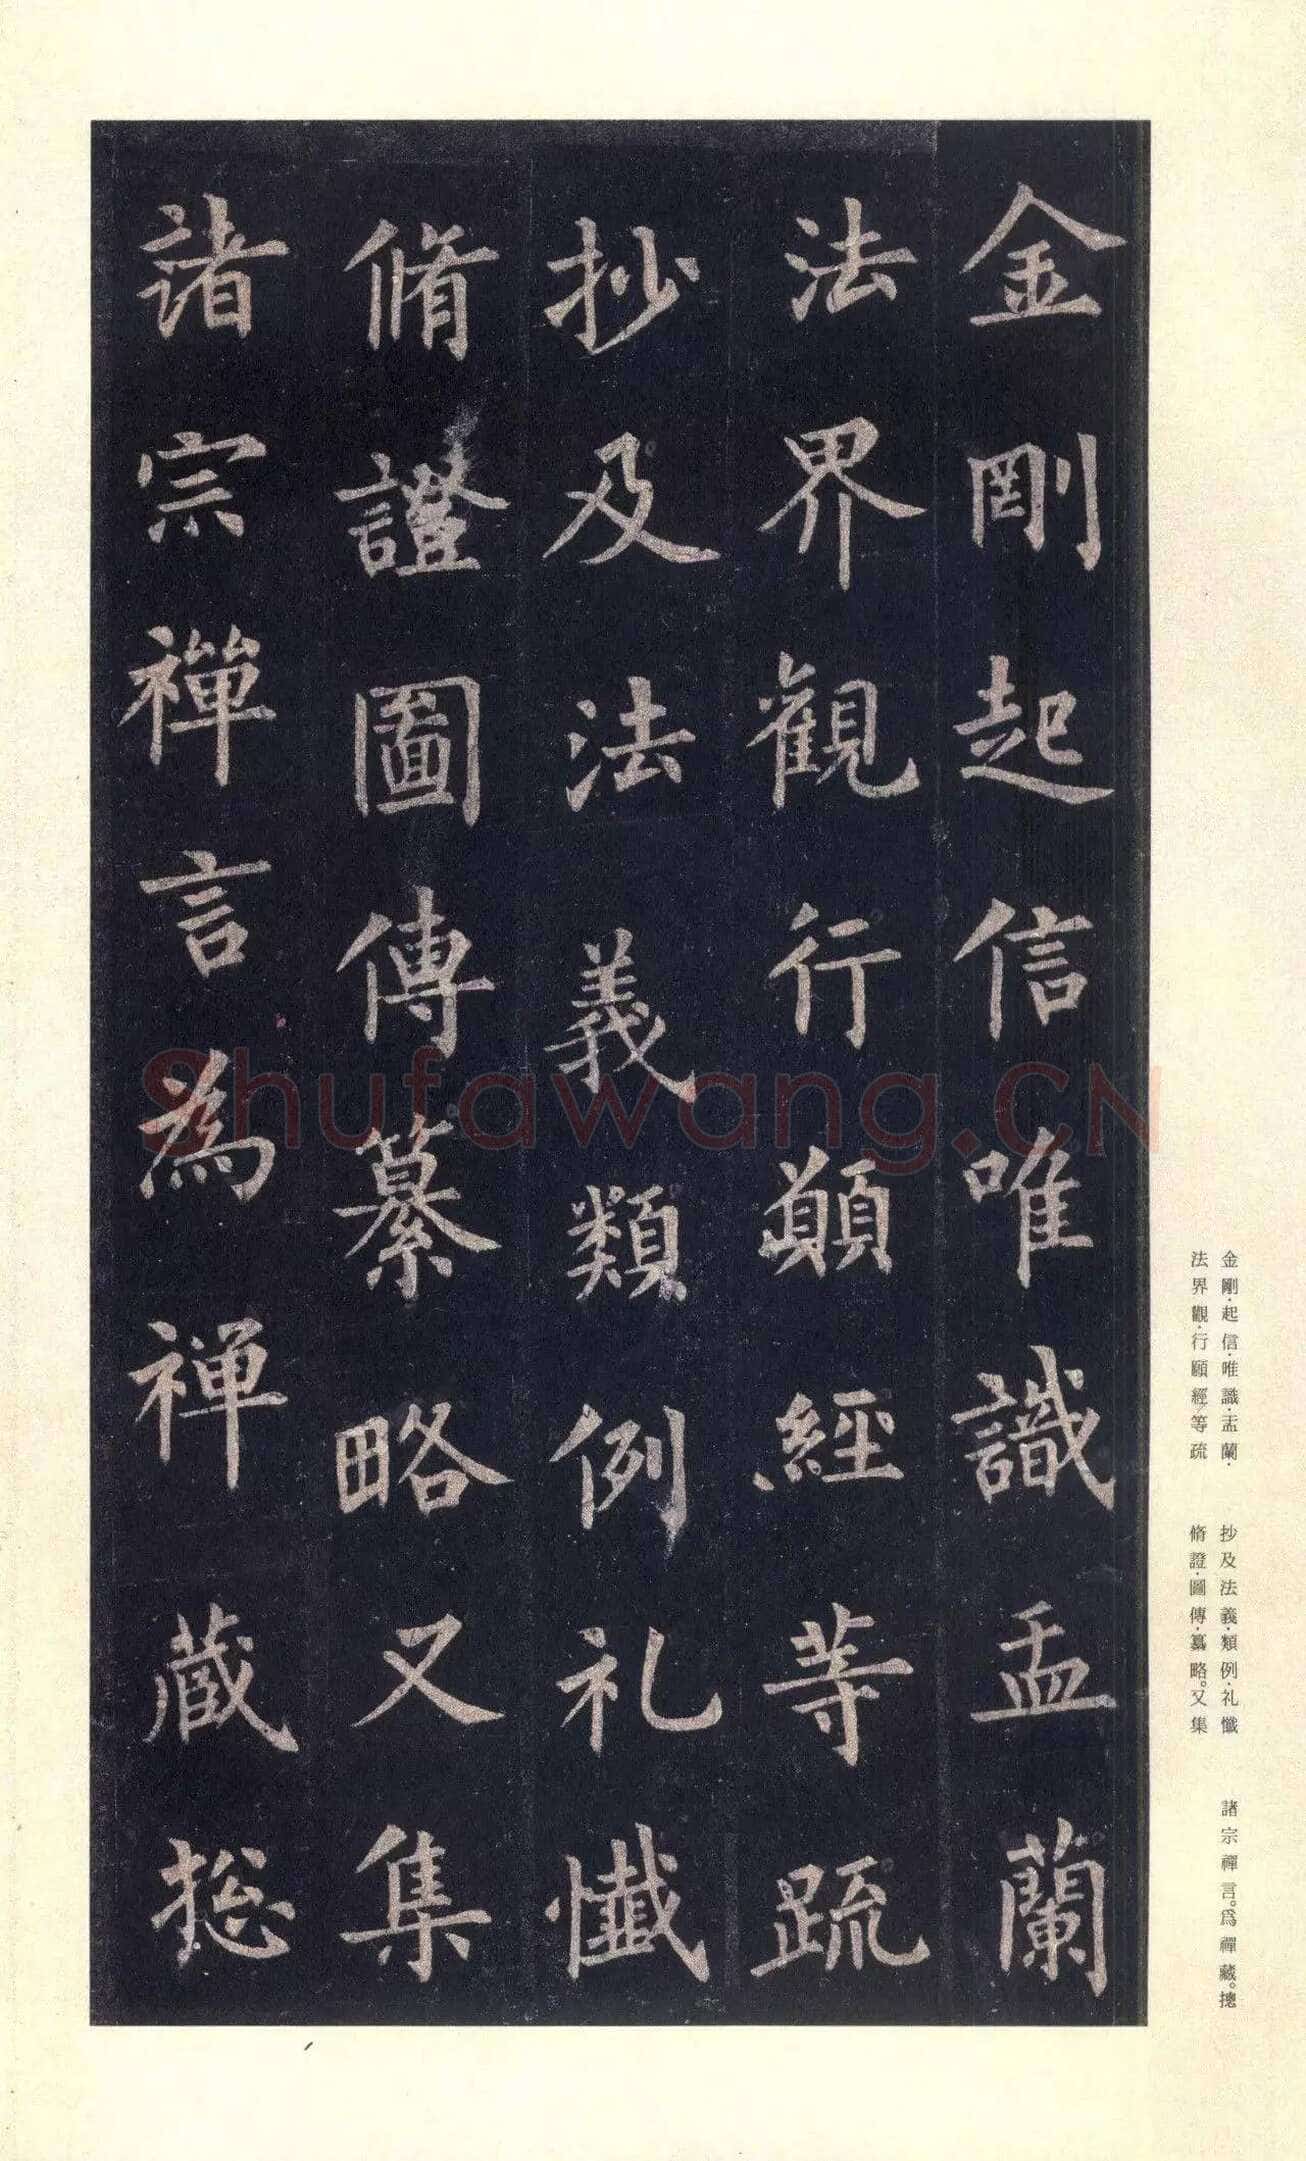 金剛起信唯識盂蘭
法界觀行願經等疏
抄及法義類例礼懺
脩證圖傳纂略又集
諸宗禪言為禪藏揔
金剛·起信·唯識·盂蘭·
法界觀·行願經等疏
抄及法義·類例·礼懺
脩證·圖傳·纂略。又集
諸宗禪言。爲禪藏。摠
Shufawang.CN